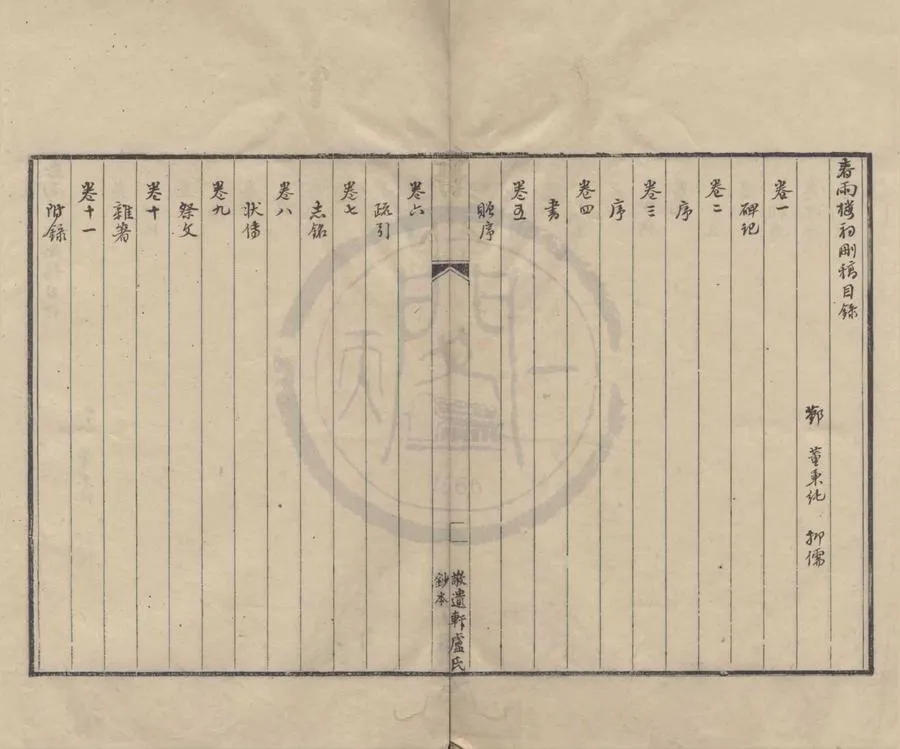 春雨樓初刪稿目錄
鄞 董秉純 抑儒
卷一
碑記
卷二
序
卷三
序
卷四
書
卷五
贈序
敬遺軒盧氏
鈔本
卷六
疏引
卷七
志銘
卷八
狀傳
卷九
祭文
卷十
雜著
卷十一
附錄